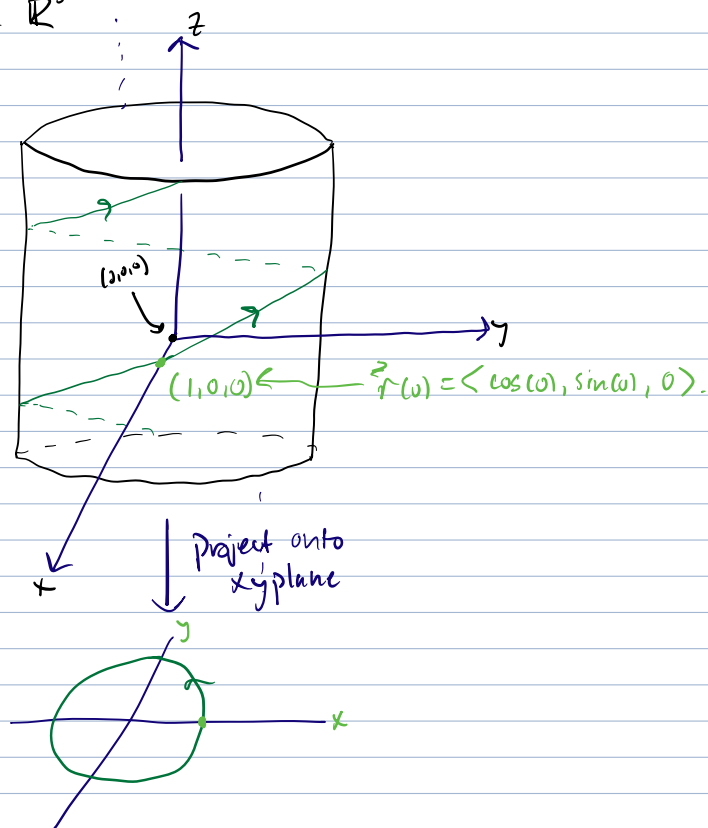 z
(0,0,0)
y
(1,0,0) ← r(0) = < cos(0), sin(0), 0 >.
project onto
xy plane
x
y
x